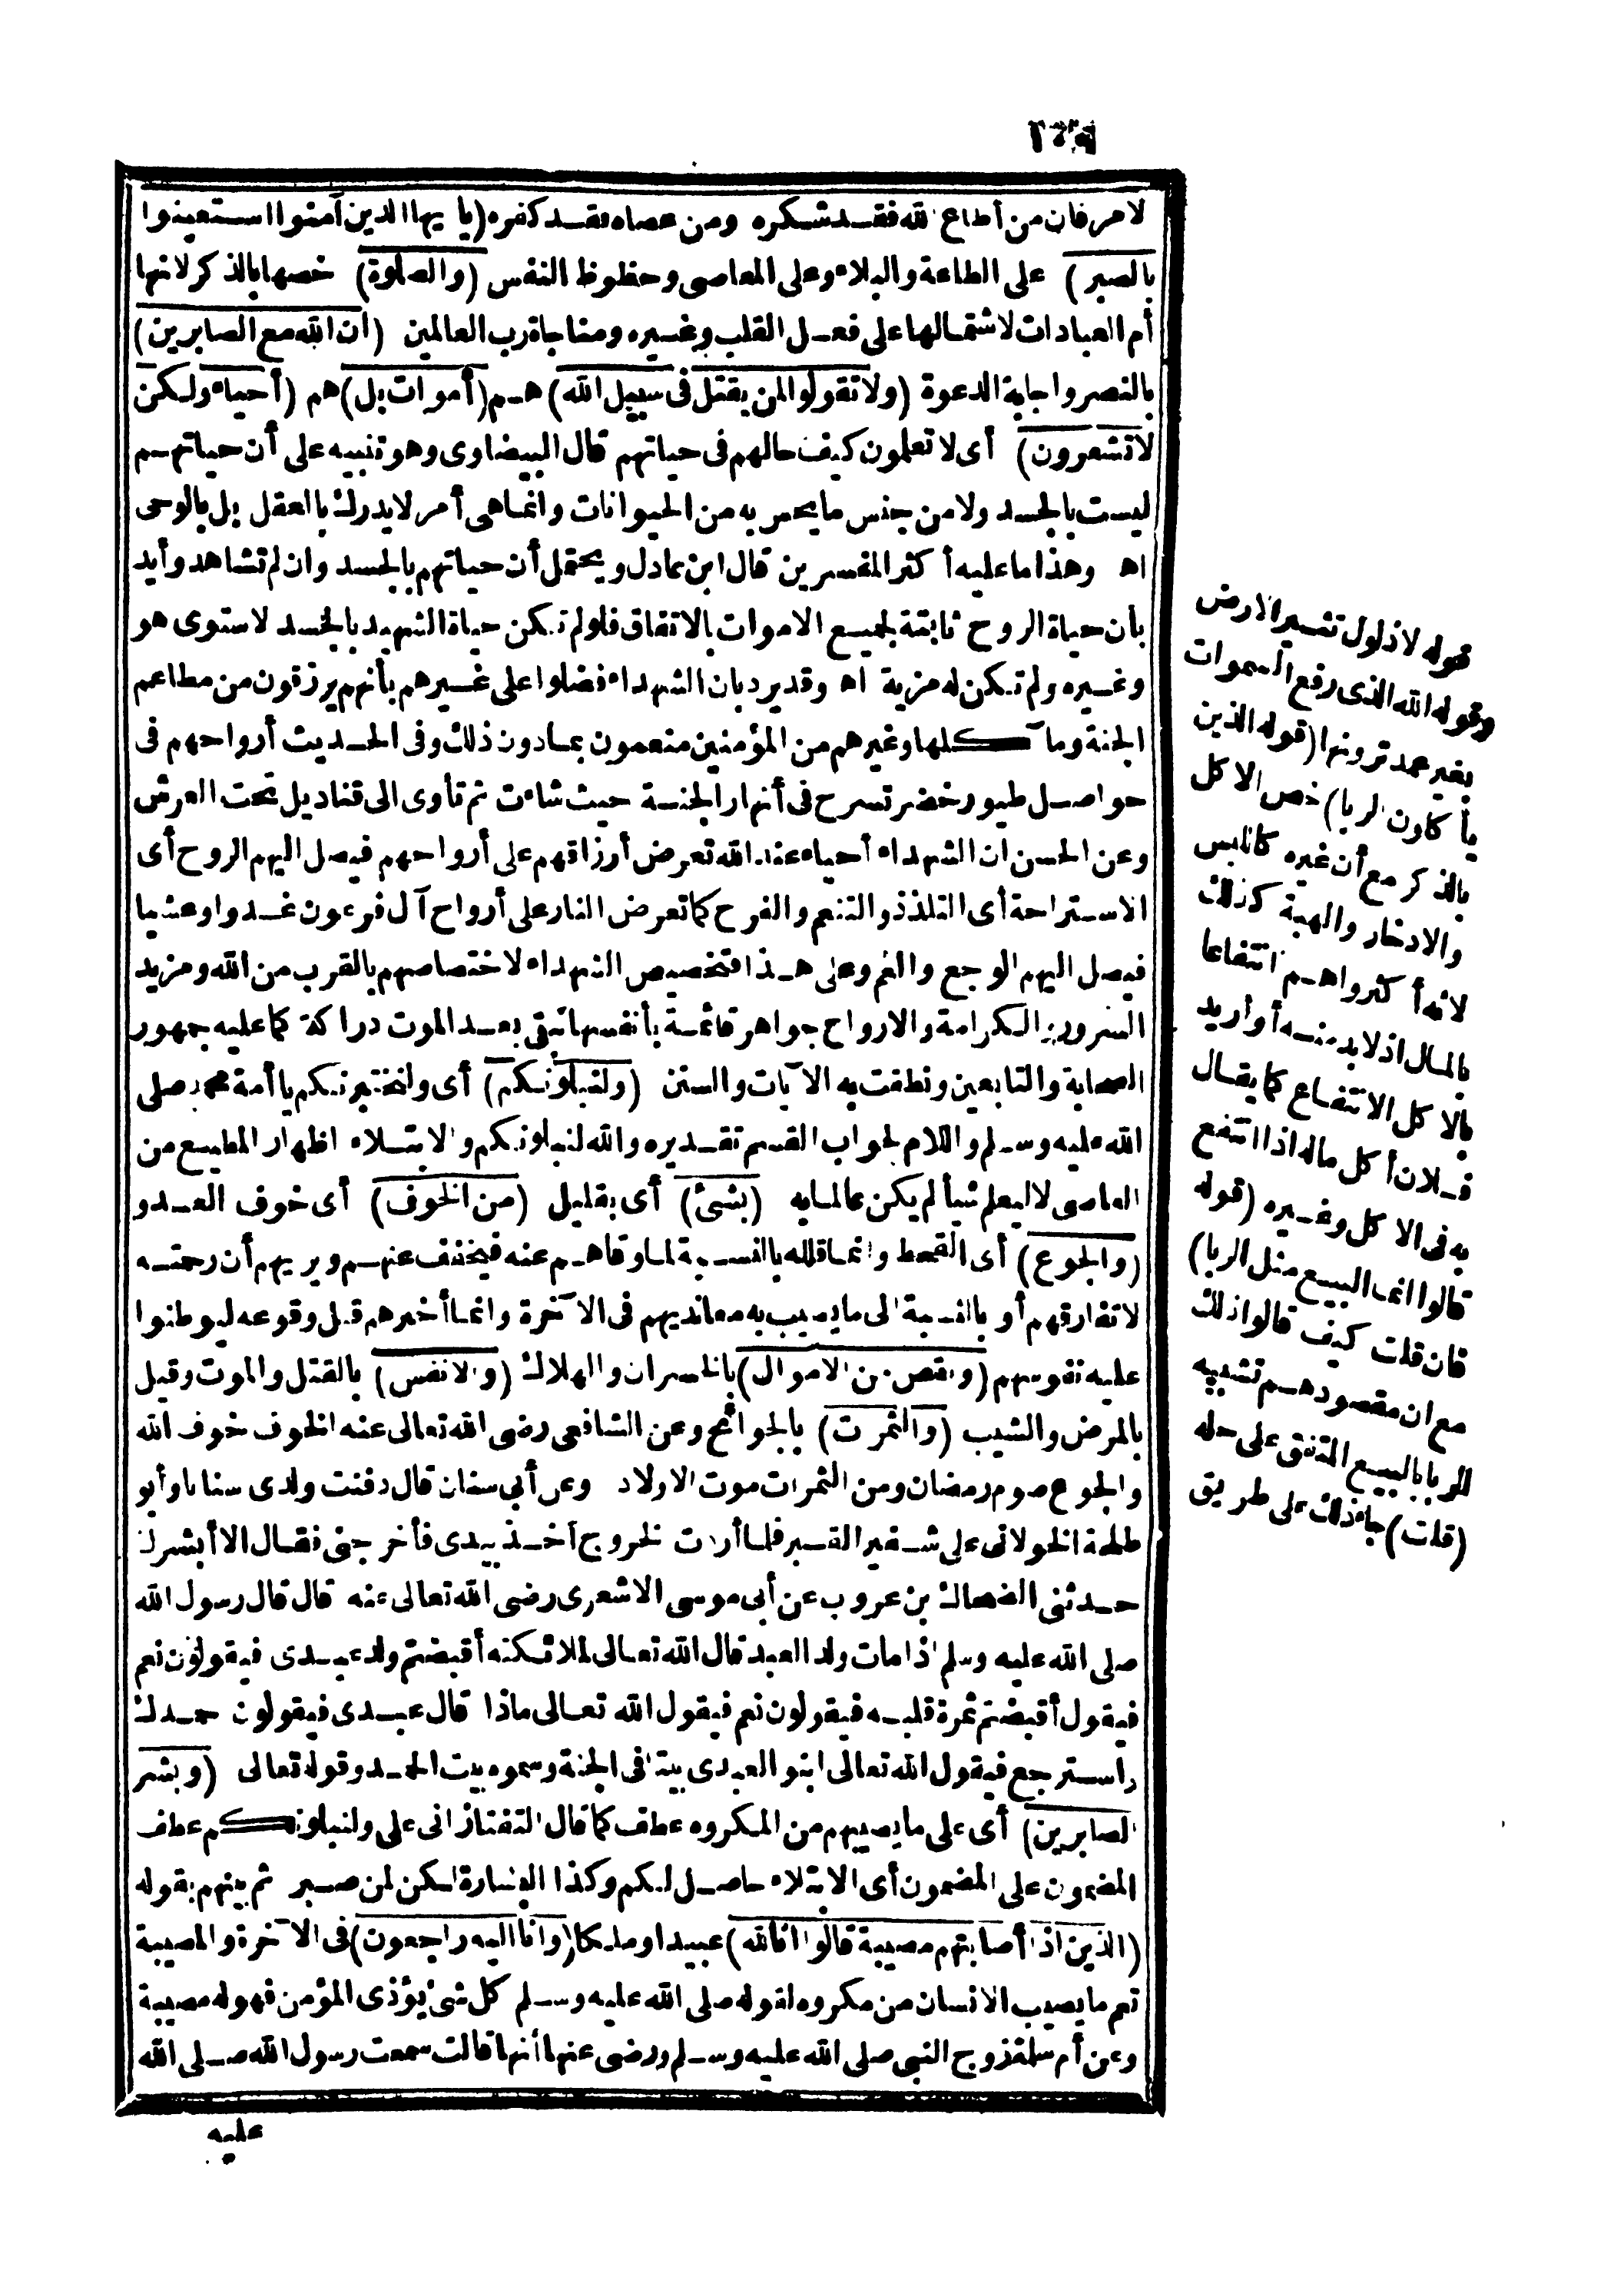 لامر فان من أطاع الله فقد شكره ومن عصاه فقد كفره (يا يها الذين آمنوا استعينوا
بالصبر) على الطاعة والبلاء وعلى المعاصى وحظوظ النفس (والصلوة) خصها بالذكر لانها
أم العبادات لاشتمالها على فعل القلب وغيره ومناجاة رب العالمين (ان الله مع الصابرين)
بالنصر واجابة الدعوة (ولا تقولوا لمن يقتل فى سبيل الله) هم (أموات بل) هم (أحياء ولكن
لا تشعرون) أى لا تعلمون كيف حالهم فى حياتهم قال البيضاوى وهو تنبيه على أن حياتهم
ليست بالجسد ولا من جنس ما يحس به من الحيوانات وانما هى أمر لا يدرك بالعقل بل بالوحى
اه وهذا ما عليه أكثر المفسرين قال ابن عادل ويحتمل أن حياتهم بالجسد وان لم تشاهد وأيد
بأن حياة الروح ثابتة لجميع الاموات بالاتفاق فلو لم تكن حياة الشهيد بالجسد لاستوى هو
وغيره ولم تكن له مزية اه وقد يرد بان الشهداء فضلوا على غيرهم بأنهم يرزقون من مطاعم
الجنة ومآكلها وغيرهم من المؤمنين منعمون بما دون ذلك وفى الحديث أرواحهم فى
حواصل طيور خضر تسرح فى أنهار الجنة حيث شاءت ثم تأوى الى قناديل تحت العرش
وعن الحسن ان الشهداء أحياء عند الله تعرض أرزاقهم على أرواحهم فيصل اليهم الروح أى
الاستراحة أى التلذذ والتنعم والفرح كما تعرض النار على أرواح آل فرعون غدوا وعشيا
فيصل اليهم الوجع والغم وعلى هذا فتخصيص الشهداء لاختصاصهم بالقرب من الله ومزيد
السرور الكرامة والارواح جواهر قائمة بأنفسها تبقى بعد الموت دراكة كما عليه جمهور
الصحابة والتابعين ونطقت به الآيات والسنن (ولنبلونكم) أى ولنختبرنكم يا أمة محمد صلى
الله عليه وسلم واللام لجواب القسم تقديره والله لنبلونكم والابتلاء اظهار المطيع من
العاصى لا ليعلم شيأ لم يكن عالما به (بشئ) أى بقليل (من الخوف) أى خوف العدو
(والجوع) أى القحط وانما قلله بالنسبة لما وقاهم عنه فيخفف عنهم ويريهم أن رحمته
لا تفارقهم أو بالنسبة الى ما يصيب به معانديهم فى الآخرة وانما أخبرهم قبل وقوعه ليوطنوا
عليه نفوسهم (ونقص من الاموال) بالخسران والهلاك (والانفس) بالقتل والموت وقيل
بالمرض والشيب (والثمرت) بالجوائح وعن الشافعى رضى الله تعالى عنه الخوف خوف الله
والجوع صوم رمضان ومن الثمرات موت الاولاد وعن أبى سنان قال دفنت ولدى سنانا وأبو
طلحة الخولانى على شفير القبر فلما أردت الخروج أخذ بيدى فأخرجنى فقال الا أبشرك
حدثنى الضحاك بن عروب عن أبى موسى الاشعرى رضى الله تعالى عنه قال قال رسول الله
صلى الله عليه وسلم اذا مات ولد العبد قال الله تعالى لملائكته أقبضتم ولد عبدى فيقولون نعم
فيقول أقبضتم ثمرة قلبه فيقولون نعم فيقول الله تعالى ماذا قال عبدى فيقولون حمدك
واسترجع فيقول الله تعالى ابنوا لعبدى بيتا فى الجنة وسموه بيت الحمد وقوله تعالى (وبشر
الصابرين) أى على ما يصيبهم من المكروه عطف كما قال التفتازانى على ولنبلونكم عطف
المضمون على المضمون أى الابتلاء حاصل لكم وكذا البشارة لكن لمن صبر ثم بينهم بقوله
(الذين اذا أصابتهم مصيبة قالوا انا لله) عبيدا وملكا (وانا اليه راجعون) فى الآخرة والمصيبة
تعم ما يصيب الانسان من مكروه لقوله صلى الله عليه وسلم كل شئ يؤذى المؤمن فهو له مصيبة
وعن أم سلمة زوج النبى صلى الله عليه وسلم ورضى عنها أنها قالت سمعت رسول الله صلى الله
عليه
قوله لا ذلول تثير الارض
وقوله الله الذى رفع السموات
بغير عمد ترونها (قوله الذين
يأكلون الربا) خص الاكل
بالذكر مع أن غيره كاللبس
والادخار والهبة كذلك
لانه أكثر وأهم انتفاعا
بالمال اذ لا بد منه أو اريد
بالاكل الانتفاع كما يقال
فلان أكل ماله اذا انتفع
به فى الاكل وغيره (قوله
قالوا انما البيع مثل الربا)
فان قلت كيف قالوا ذلك
مع ان مقصودهم تشبيه
الربا بالبيع المتفق على حله
(قلت) جاء ذلك على طريق